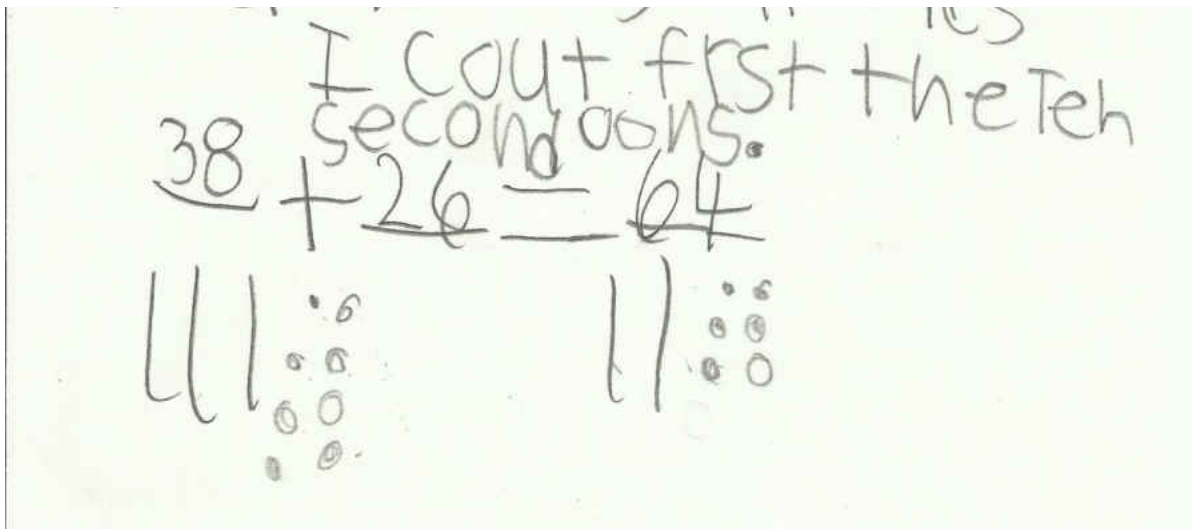 I cout frst the Ten
second oons.
38 + 26 = 64